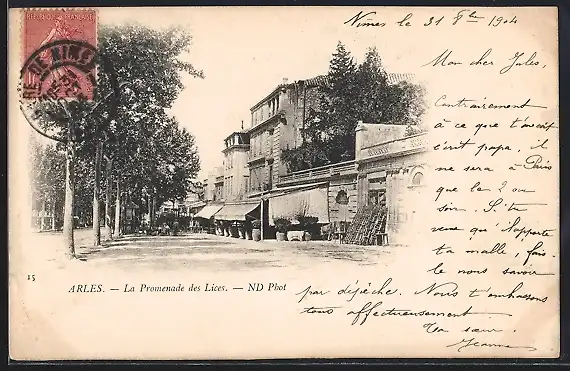 REPUBLIQUE FRANÇAISE
Nîmes le 31 8bre 1904
Mon cher Jules,
Contrairement
à ce que t'écrit
papa, il
ne sera à Paris
que le 2 au
soir. Si tu
veux qu'il t'apporte
ta malle, fais
le nous savoir
15
ARLES. — La Promenade des Lices. — ND Phot
par dépêche. Nous t'embrassons
tous affectueusement
Ta sœur
Jeanne